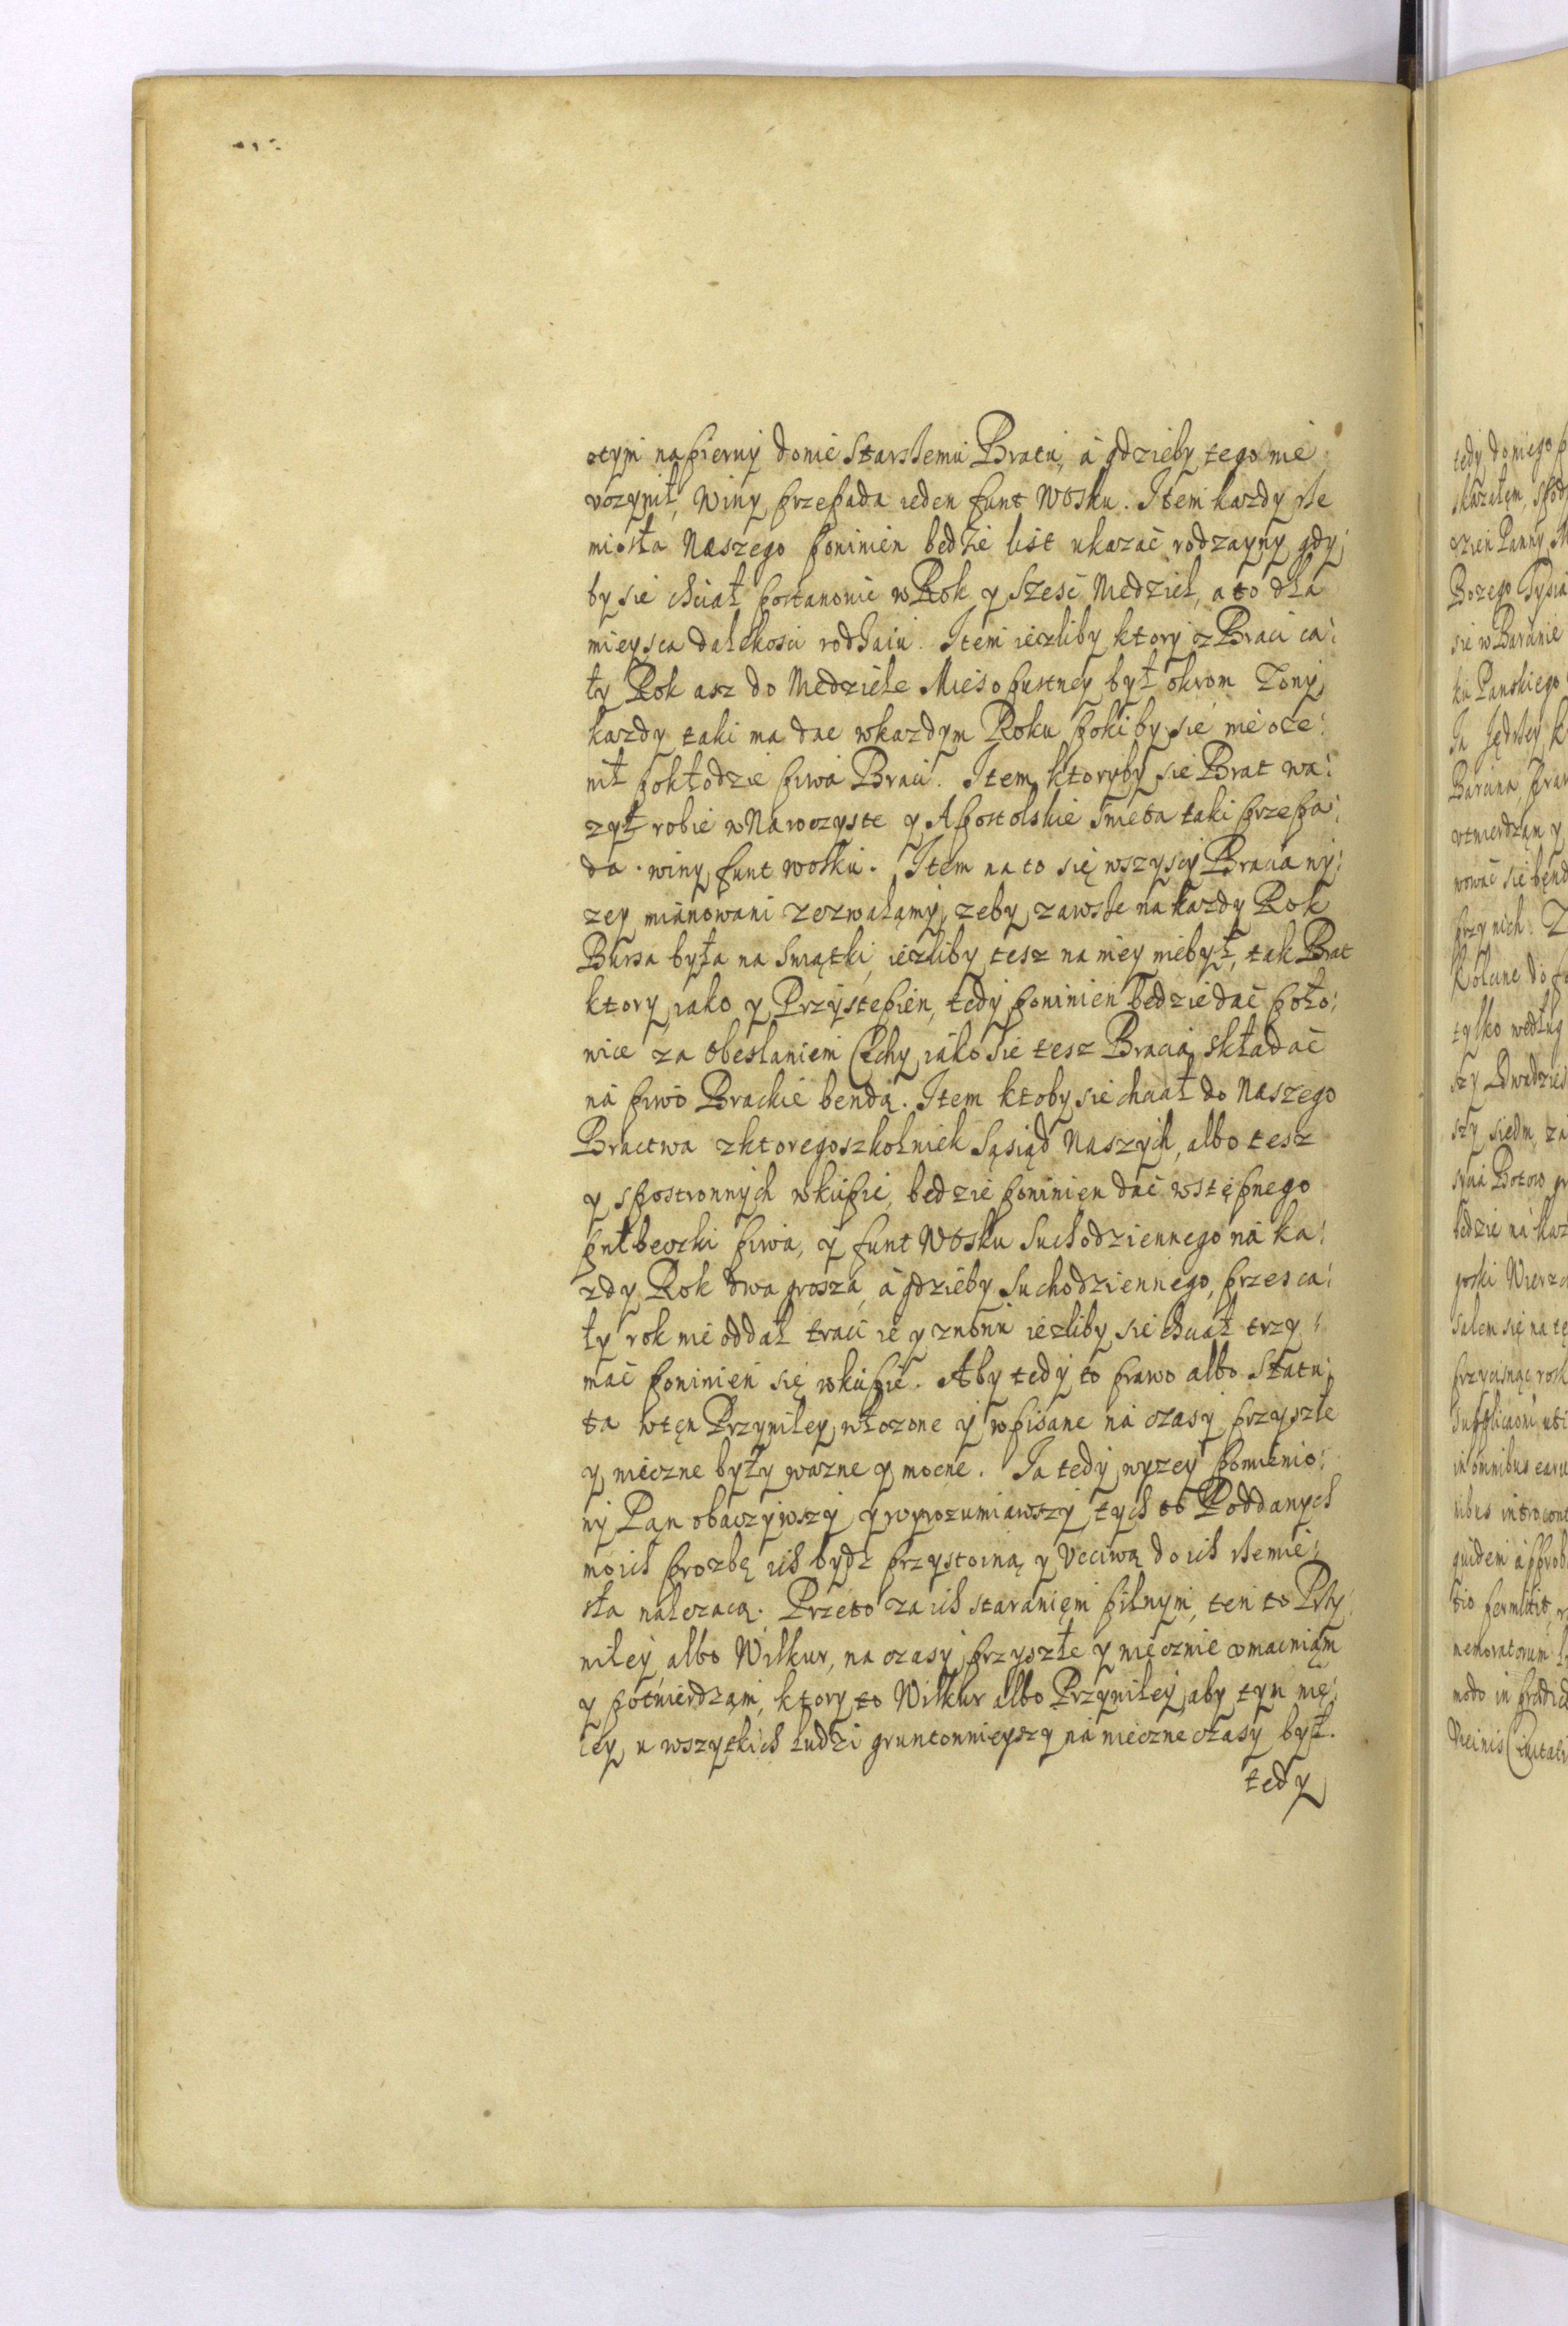 otym napierwy donie Starszemu Bratu, à gdzieby tego nie
vczynił, Winy przepada ieden funt Wosku. Item kazdy rze
miosła Naszego powinien bedzie list ukazać rodzayny gdy:
by sie chciał postanowic w Rok y Sześć Niedziel, a to dla
mieysca dalekosci rodzaiu. Item iezliby ktory z Braci ca:
ły Rok asz do Niedziele Mięsopustney był okrom Zony
kazdy taki ma dac w kazdym Roku poki by sie nie oże:
nił pokłodzie piwa Braci. Item ktoryby sie Brat wa:
zył robic w Nawczyste y Apostolskie Swieta taki przepa:
da winy funt wosku. Item na to się wszyscy Bracia ny:
zey mianowani zezwalamy, zeby zawsze na kazdy Rok
Bursa była na Swiątki, iezliby tesz na niey niebył, tak Brat
ktory, iako y Przystepień, tedy powinien bedzie dać poło:
wice za obesłaniem Cechy iako sie tesz Bracia składać
na piwo Brackie bendą. Item ktoby sie chciał do Naszego
Bractwa z ktoregoszkolwiek Sąsiąd Naszych, albo tesz
y spostronnych wkupic, bedzie powinien dać wstępnego
puł beczki piwa, y funt Wosku Suchodziennego na ka:
zdy Rok dwa grosza, à gdzieby Suchodziennego, przes ca:
ły rok nie oddał traci ie y znowu iezliby sie chciał trzy:
mać powinien się wkupic. Aby tedy to prawo albo Statu
ta wtęn Przywiley włozone y wpisane na czasy przyszłe
y wieczne były wazne y mocne. Ia tedy wyzey pomienio:
ny Pąn obaczywszy y wyrozumiawszy tych to Poddanych
moich prozbę ich bydz przystoiną y Vcciwą do ich rzemie:
sła nalezacą. Przeto za ich staraniem pilnym, ten to Przy
wiley albo Wilkur, na czasy przyszłe y wiecznie wmacniąm
y potwierdząm, ktory to Wilkur albo Przywiley aby tym wię:
cey u wszytkich ludzi gruntownieyszy na wieczne czasy był.
tedy